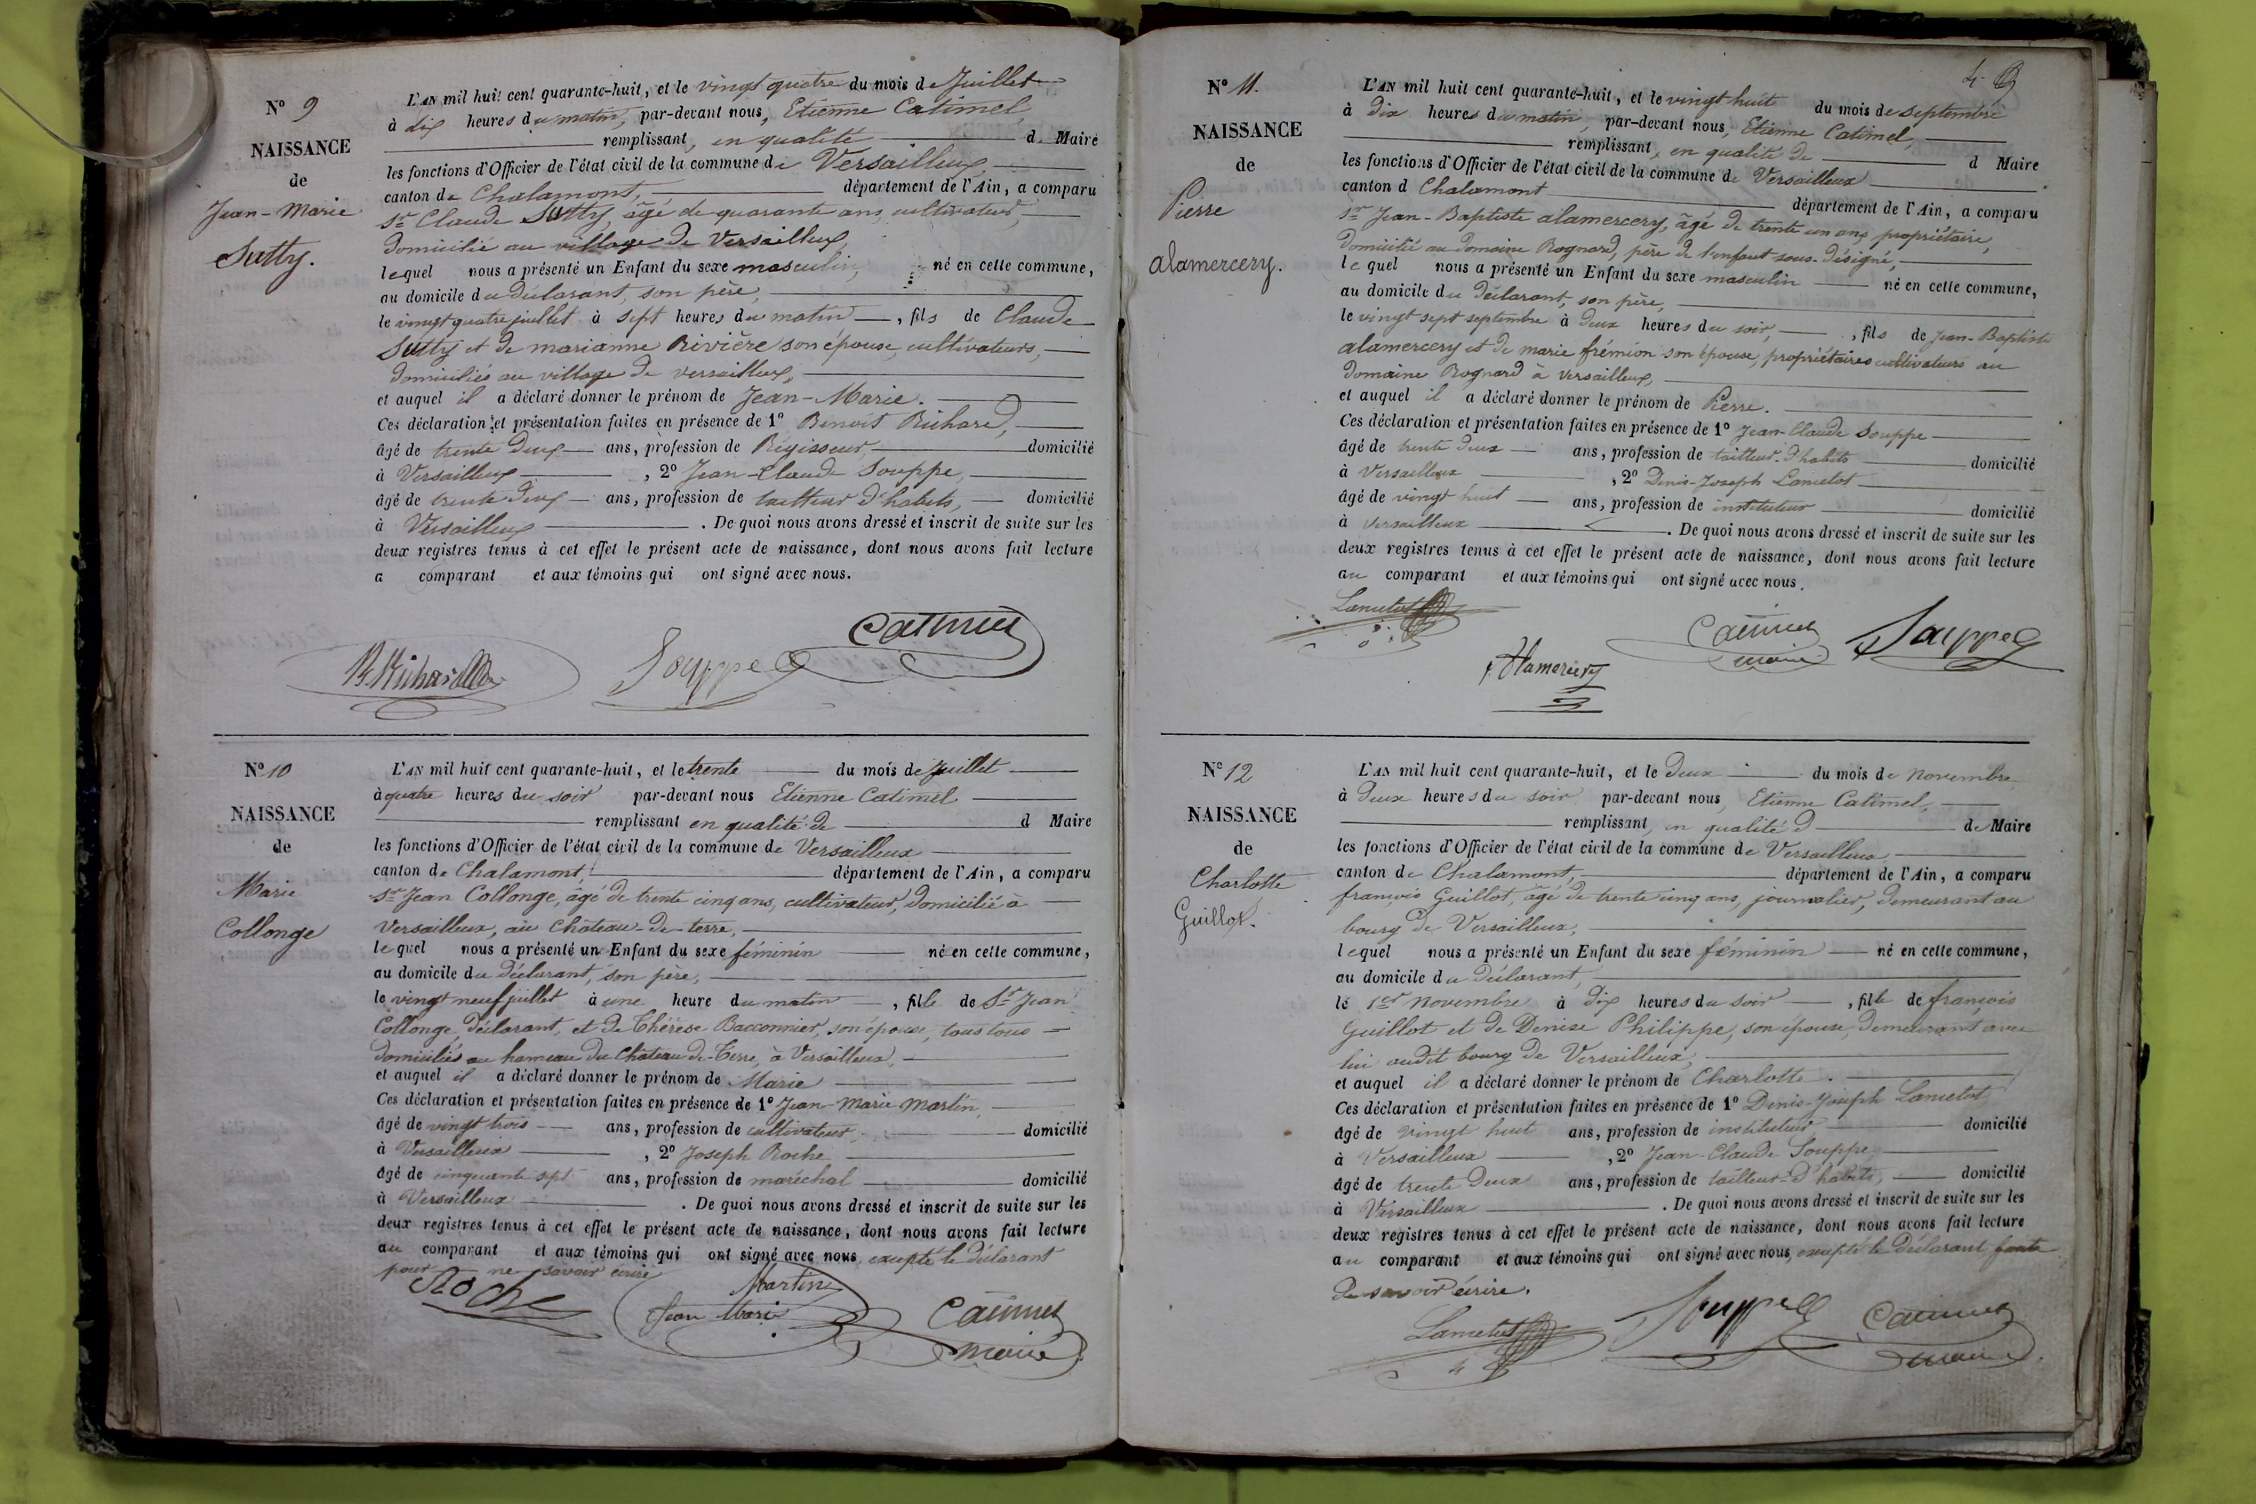 N° 9
NAISSANCE
de
Jean-Marie
Sutty.
L'AN mil huit cent quarante-huit, et le vingt quatre du mois de Juillet
à dix heures du matin, par-devant nous, Etienne Catimel,
remplissant, en qualité d. Maire
les fonctions d'Officier de l'état civil de la commune de Versailleux,
canton de Chalamont, département de l'Ain, a comparu
Sr Claude Sutty, âgé de quarante ans, cultivateur,
domicilié au village de Versailleux,
lequel nous a présenté un Enfant du sexe masculin, né en cette commune,
au domicile du déclarant, son père,
le vingt quatre juillet à sept heures du matin, fils de Claude
Sutty et de marianne Rivière son épouse, cultivateurs,
domiciliés au village de versailleux,
et auquel il a déclaré donner le prénom de Jean-Marie.
Ces déclaration et présentation faites en présence de 1° Benoit Richard,
âgé de trente deux ans, profession de Régisseur, domicilié
à Versailleux, 2° Jean-Claude Souppe,
âgé de trente deux ans, profession de tailleur d'habits, domicilié
à Versailleux. De quoi nous avons dressé et inscrit de suite sur les
deux registres tenus à cet effet le présent acte de naissance, dont nous avons fait lecture
a comparant et aux témoins qui ont signé avec nous.
Catimel
B. Richard Souppe
N° 10
NAISSANCE
de
Marie
Collonge
L'AN mil huit cent quarante-huit, et le trente du mois de juillet
à quatre heures du soir par-devant nous Etienne Catimel
remplissant en qualité de d Maire
les fonctions d'Officier de l'état civil de la commune de Versailleux
canton de Chalamont, département de l'Ain, a comparu
Sr Jean Collonge, âgé de trente cinq ans, cultivateur, domicilié à
Versailleux, au Château-de-terre,
lequel nous a présenté un Enfant du sexe féminin né en cette commune,
au domicile du déclarant, son père,
le vingt neuf juillet à une heure du matin, fille de Sr Jean
Collonge, déclarant, et de Thérèse Bacconnier, son épouse, tous tous
domiciliés au hameau du Château-de-Terre, à Versailleux,
et auquel il a déclaré donner le prénom de Marie
Ces déclaration et présentation faites en présence de 1° Jean-Marie Martin,
âgé de vingt trois ans, profession de cultivateur domicilié
à Versailleux, 2° Joseph Roche
âgé de cinquante sept ans, profession de maréchal domicilié
à Versailleux. De quoi nous avons dressé et inscrit de suite sur les
deux registres tenus à cet effet le présent acte de naissance, dont nous avons fait lecture
au comparant et aux témoins qui ont signé avec nous excepté le déclarant
pour ne savoir écrire
Roche Martin
Jean Mari Catimel
maire
4
N° 11.
NAISSANCE
de
Pierre
alamercery.
L'AN mil huit cent quarante-huit, et le vingt huit du mois de septembre
à dix heures du matin, par-devant nous, Etienne Catimel,
remplissant, en qualité de d Maire
les fonctions d'Officier de l'état civil de la commune de Versailleux
canton d Chalamont département de l'Ain, a comparu
Sr Jean-Baptiste alamercery, âgé de trente un ans, propriétaire,
domicilié au domaine Rognard, père de l'enfant sous-désigné,
lequel nous a présenté un Enfant du sexe masculin né en cette commune,
au domicile du déclarant, son père,
le vingt sept septembre à deux heures du soir, fils de Jean-Baptiste
alamercery et de marie frémion son épouse, propriétaires cultivateurs au
domaine Rognard à Versailleux,
et auquel il a déclaré donner le prénom de Pierre.
Ces déclaration et présentation faites en présence de 1° Jean-Claude Souppe
âgé de trente deux ans, profession de tailleur d'habits domicilié
à Versailleux, 2° Denis-Joseph Lamelot
âgé de vingt huit ans, profession de instituteur domicilié
à versailleux. De quoi nous avons dressé et inscrit de suite sur les
deux registres tenus à cet effet le présent acte de naissance, dont nous avons fait lecture
au comparant et aux témoins qui ont signé avec nous.
Lamelot Catimel Souppe
maire
Alamercery
N° 12
NAISSANCE
de
Charlotte
Guillot.
L'AN mil huit cent quarante-huit, et le deux du mois de novembre
à deux heures du soir par-devant nous, Etienne Catimel,
remplissant, en qualité d de Maire
les fonctions d'Officier de l'état civil de la commune de Versailleux
canton de Chalamont, département de l'Ain, a comparu
françois Guillot, âgé de trente cinq ans, journalier, demeurant au
bourg de Versailleux,
lequel nous a présenté un Enfant du sexe féminin né en cette commune,
au domicile du déclarant,
le 1er novembre à dix heures du soir, fille de françois
Guillot et de Denise Philippe, son épouse, demeurant avec
lui audit bourg de Versailleux,
et auquel il a déclaré donner le prénom de Charlotte.
Ces déclaration et présentation faites en présence de 1° Denis-Joseph Lamelot
âgé de vingt huit ans, profession de instituteur domicilié
à Versailleux, 2° Jean-Claude Souppe
âgé de trente deux ans, profession de tailleur d'habits, domicilié
à Versailleux. De quoi nous avons dressé et inscrit de suite sur les
deux registres tenus à cet effet le présent acte de naissance, dont nous avons fait lecture
au comparant et aux témoins qui ont signé avec nous, excepté le déclarant faute
de savoir écrire.
Lamelot Souppe Catimel
maire